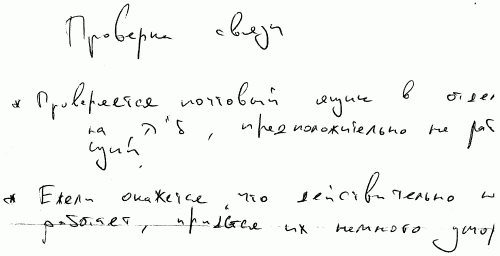 Проверка связи
* Проверяется почтовый ящик в
на , предположительно не
* Если окажется, что действительно
работает, придётся их немного